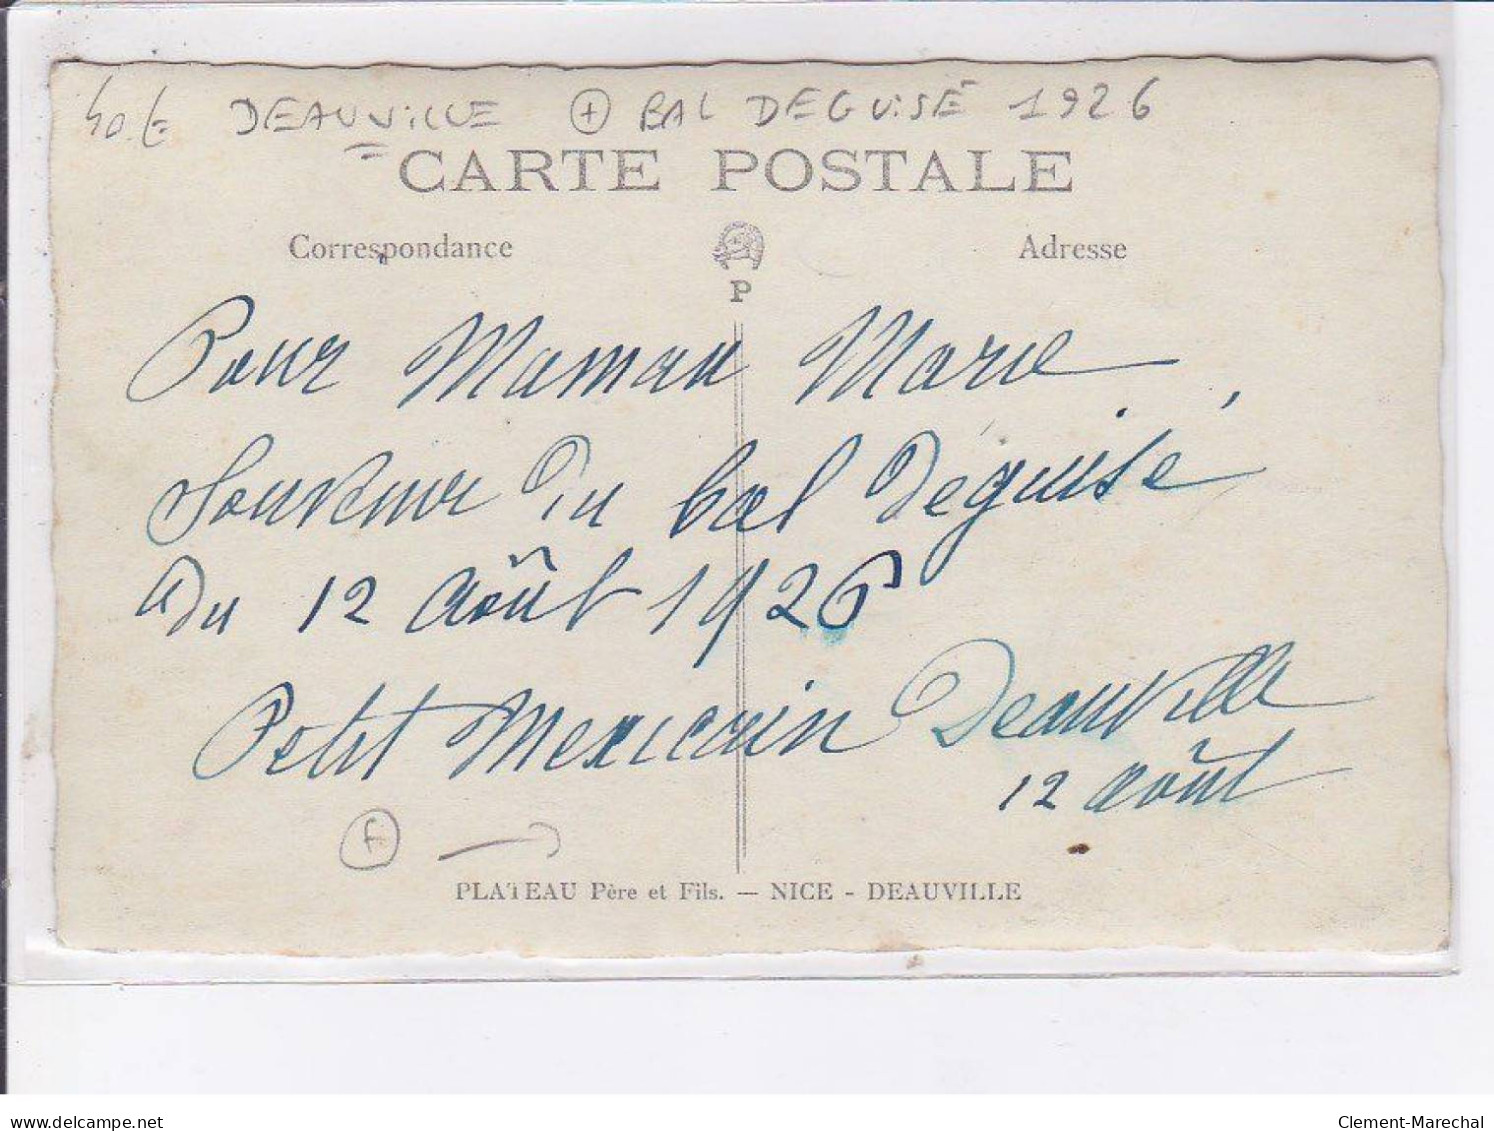 40 € DEAUVILLE + BAL DEGUISÉ 1926
CARTE POSTALE
Correspondance Adresse
P
Pour Maman Marie,
Souvenir Du bal Déguisé
Du 12 Août 1926
Petit Mexicain Deauville
12 Août
F
PLATEAU Père et Fils. — NICE - DEAUVILLE
delcampe.net
Clement-Marechal